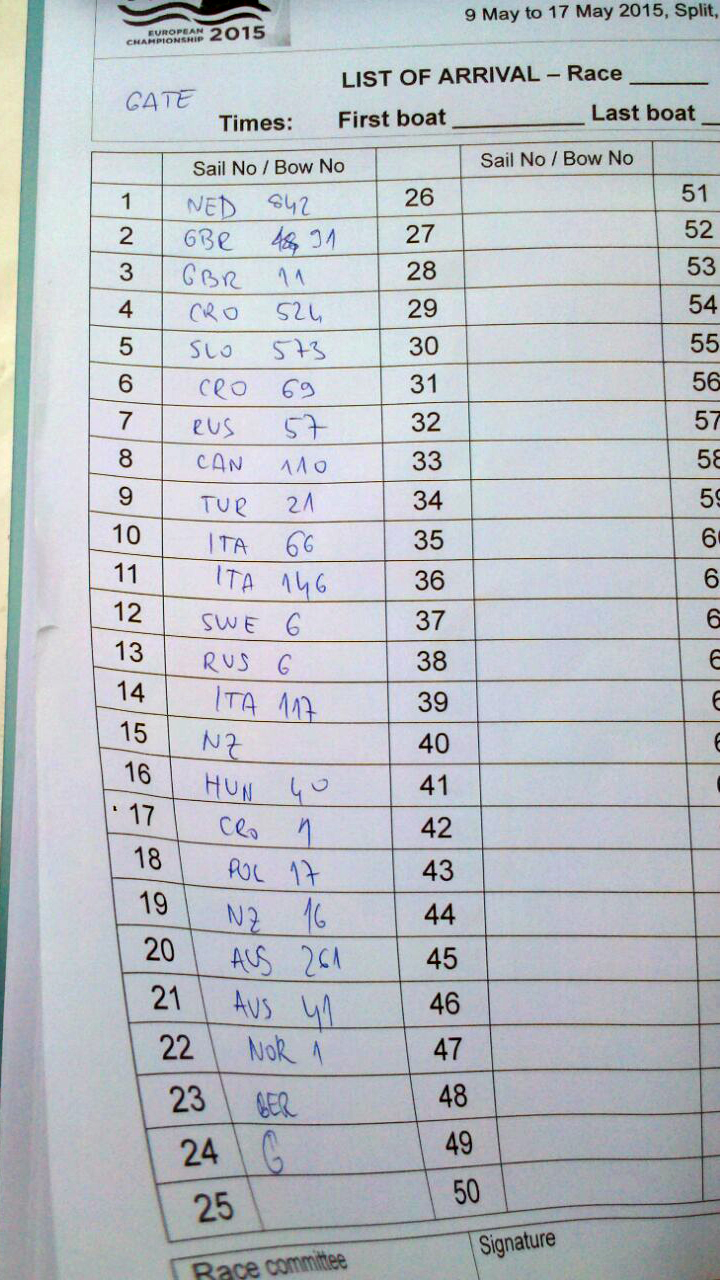 EUROPEAN
CHAMPIONSHIP 2015
9 May to 17 May 2015, Split,
LIST OF ARRIVAL – Race ______
GATE
Times: First boat __________ Last boat __
Sail No / Bow No Sail No / Bow No
1 NED 842 26 51
2 GBR 91 27 52
3 GBR 11 28 53
4 CRO 524 29 54
5 SLO 573 30 55
6 CRO 69 31 56
7 RUS 57 32 57
8 CAN 110 33 58
9 TUR 21 34 59
10 ITA 66 35
11 ITA 146 36
12 SWE 6 37
13 RUS 6 38
14 ITA 117 39
15 NZ 40
16 HUN 40 41
17 CRO 1 42
18 POL 17 43
19 NZ 16 44
20 AUS 261 45
21 AUS 41 46
22 NOR 1 47
23 GER 48
24 G 49
25 50
Race committee Signature